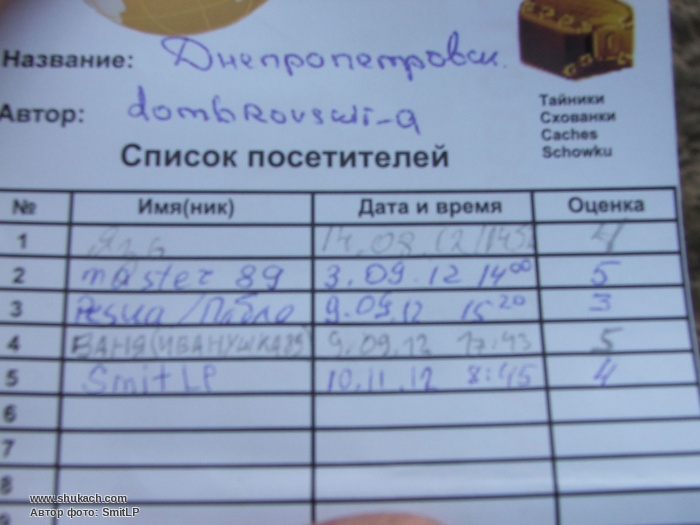 Название: Днепропетровск.
Автор: dombrovskii-a
Тайники
Схованки
Caches
Schowku
Список посетителей
№ Имя(ник) Дата и время Оценка
1 14.08.12 4
2 master 89 3.09.12 14:00 5
3 9.09.12 15:20 3
4 ВАНЯ(ИВАНУШКА89) 9.09.12 17:43 5
5 SmitLP 10.11.12 8:45 4
6
7
8
9
www.shukach.com
Автор фото: SmitLP